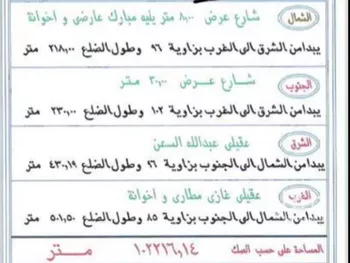 الشمال شارع عرض ٨,٠٠ متر يليه مبارك عارضي و اخوانة
يبدا من الشرق الى الغرب بزاوية ٩٦ وطول الضلع ٢١٨,٠٠ متر
الجنوب شارع عرض ٣٠,٠٠ متر
يبدا من الشرق الى الغرب بزاوية ١٠٢ وطول الضلع ٢٣٠,٠٠ متر
الشرق عقيلي عبدالله السعن
يبدا من الشمال الى الجنوب بزاوية ٩٦ وطول الضلع ٤٣٠,١٩ متر
الغرب عقيلي غازي مطاري و اخوانة
يبدا من الشمال الى الجنوب بزاوية ٨٥ وطول الضلع ٥٠١,٥٠ متر
المساحة على حسب الصك ١٠٢٢١٦,١٤ متر